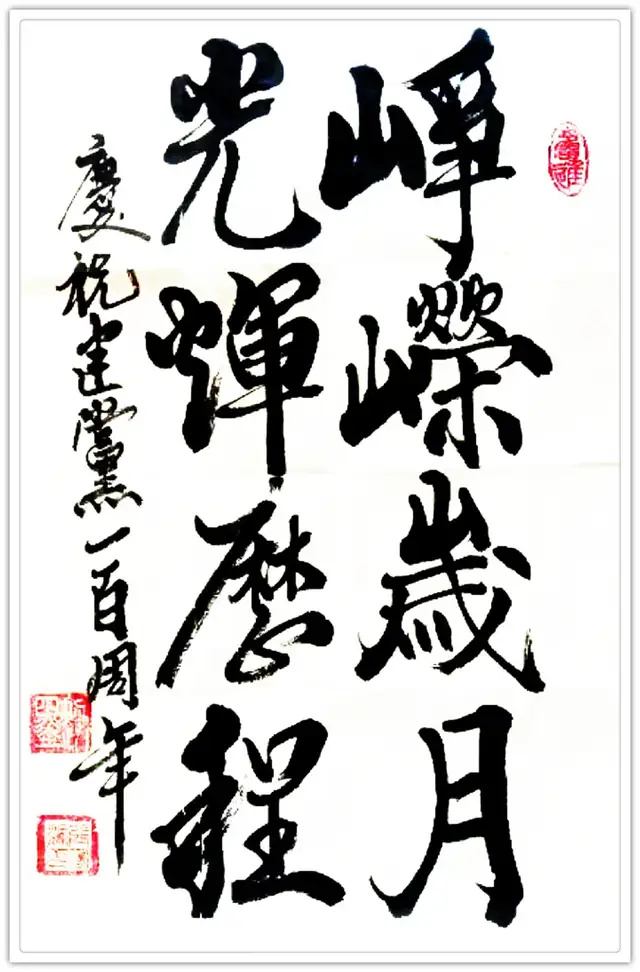 崢嶸歲月
光輝歷程
慶祝建黨一百周年